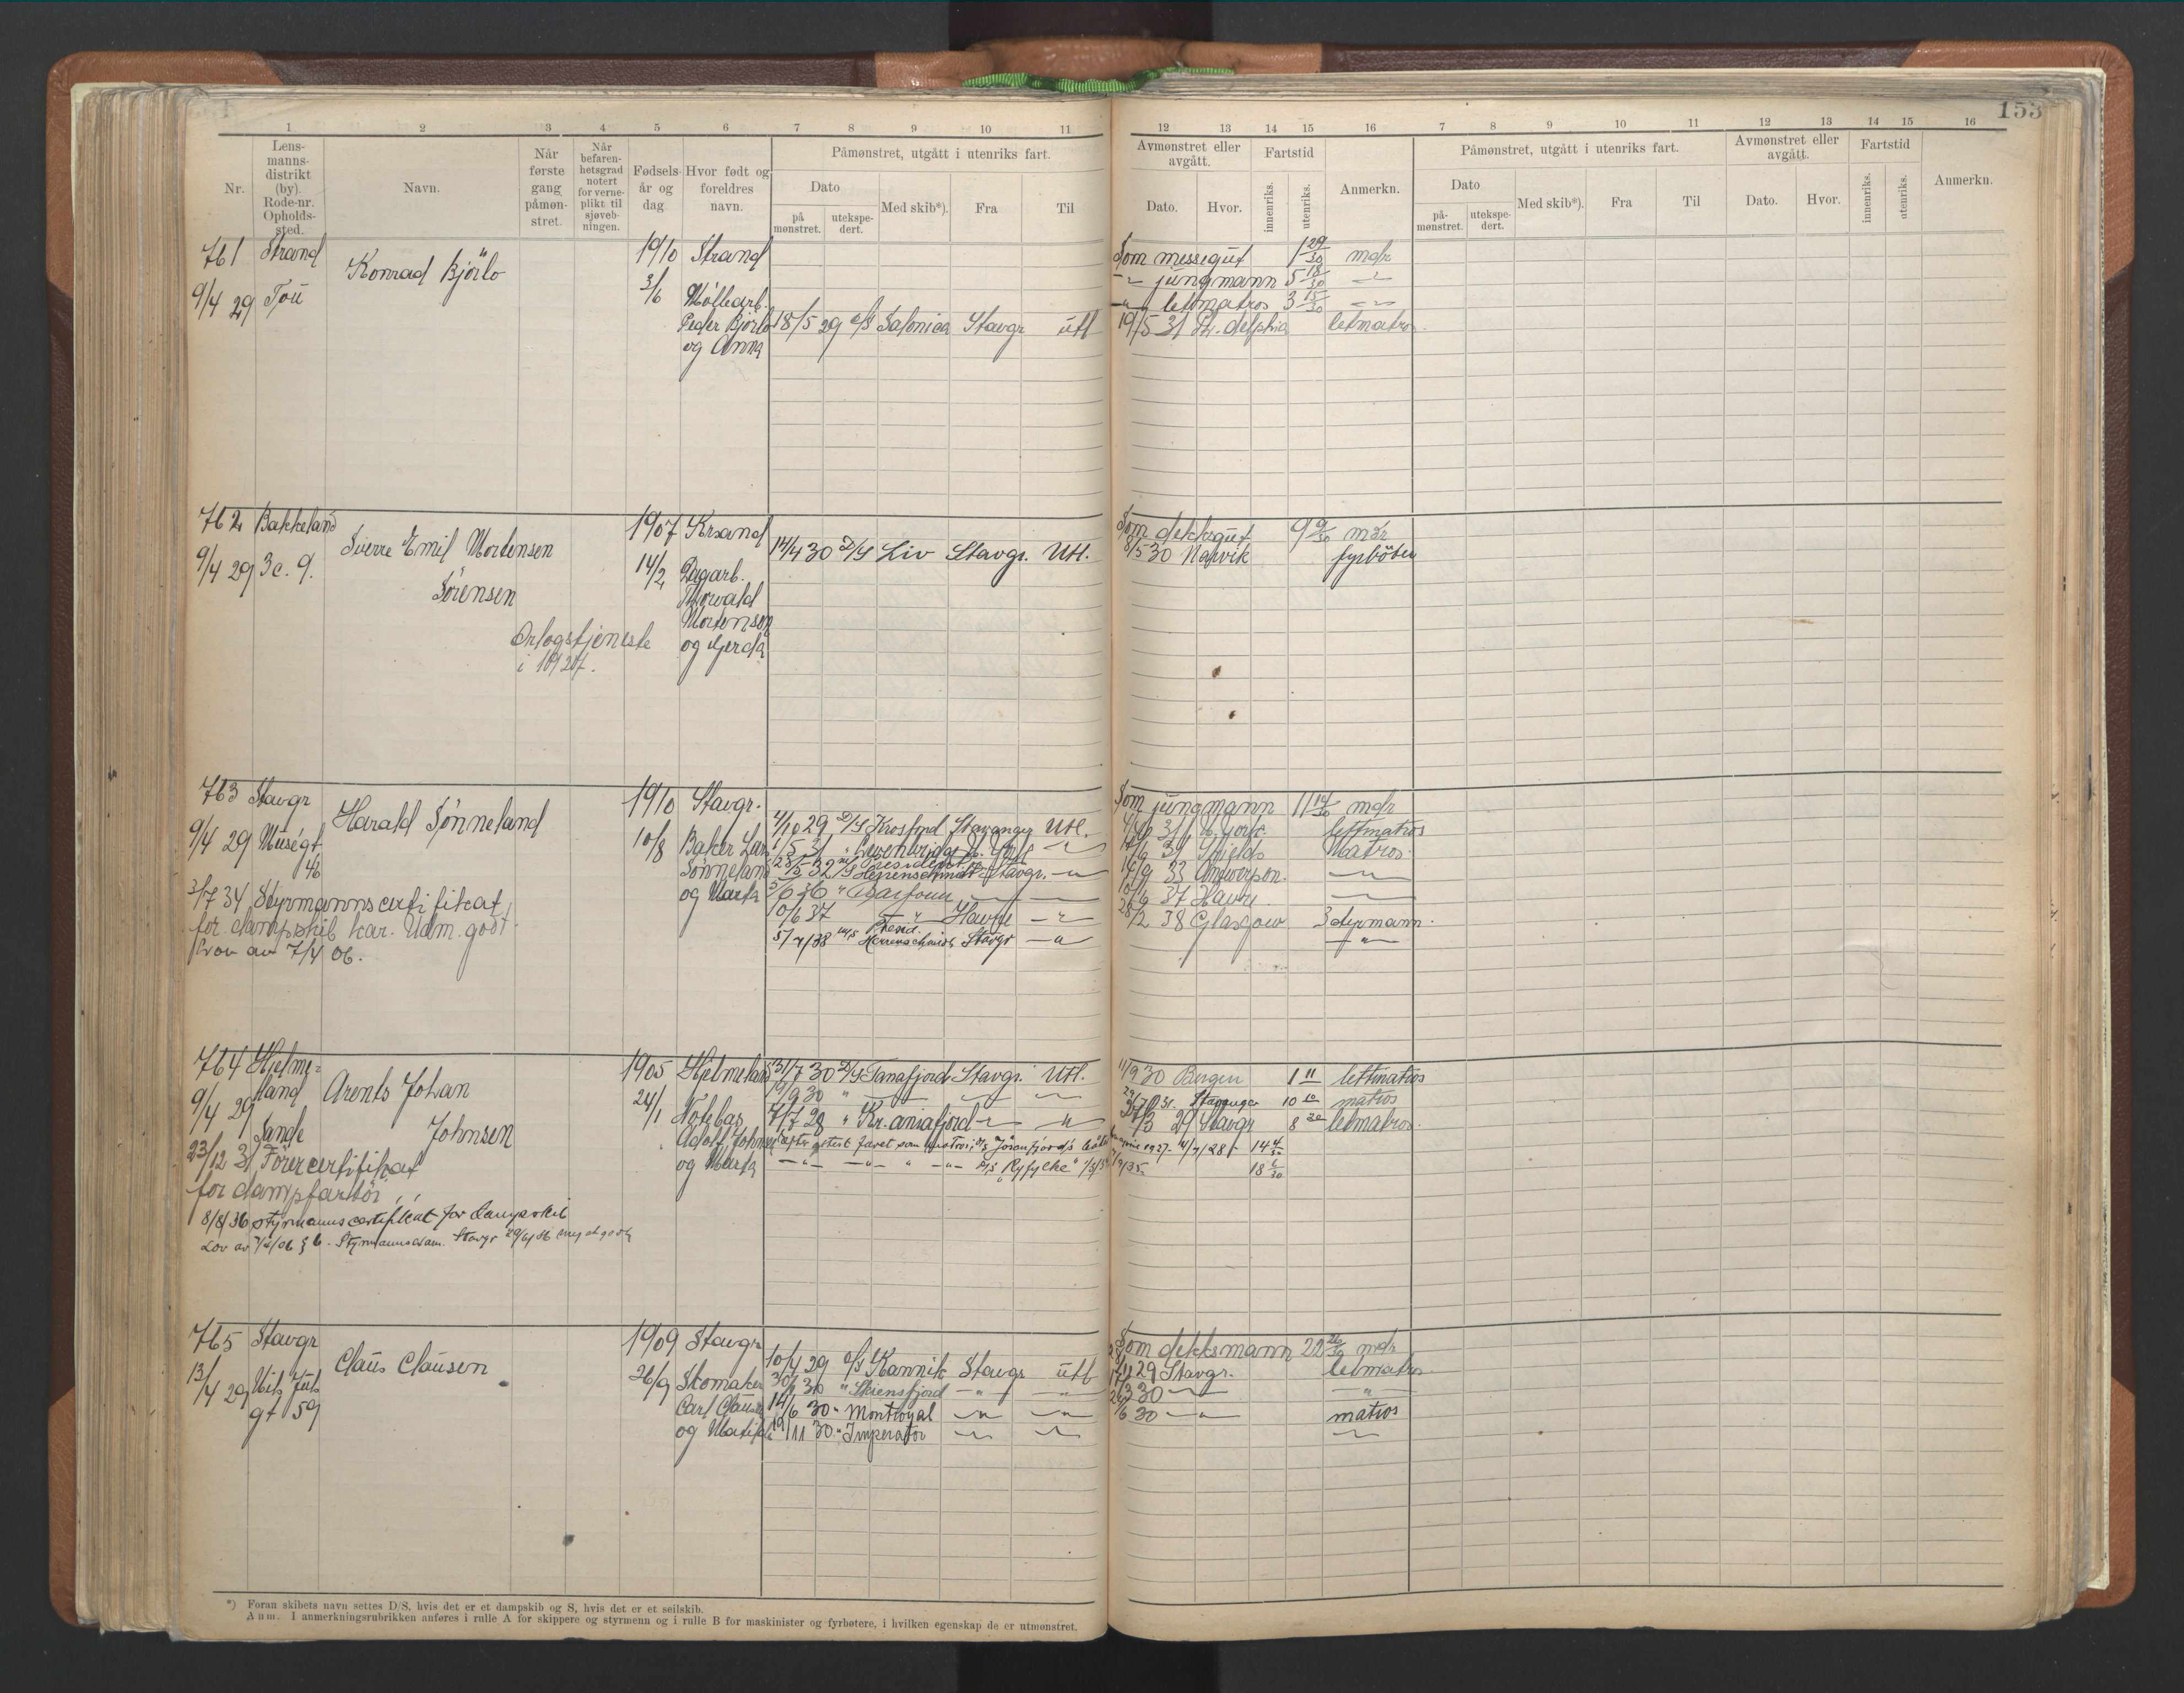 153
1 2 3 4 5 6 7 8 9 10 11 12 13 14 15 16 7 8 9 10 11 12 13 14 15 16
Nr.
Lens-
manns-
distrikt
(by).
Rode-nr.
Opholds-
sted.
Navn.
Når
første
gang
påmøn-
stret.
Når
befaren-
hetsgrad
notert
for verne-
plikt til
sjøveb-
ningen.
Fødsels-
år og
dag.
Hvor født og
foreldres
navn.
Påmønstret, utgått i utenriks fart.
Dato
på
mønstret.
utekspe-
dert.
Med skib*).
Fra
Til
Avmønstret eller
avgått.
Dato.
Hvor.
Fartstid
innenriks.
utenriks.
Anmerkn.
Påmønstret, utgått i utenriks fart.
Dato
på-
mønstret.
utekspe-
dert.
Med skib*).
Fra
Til
Avmønstret eller
avgått.
Dato.
Hvor.
Fartstid
innenriks.
utenriks.
Anmerkn.
761 Strand
9/4 29 Tou
Konrad Bjørlo
1910
3/6
Strand
Møllearb.
Peder Bjørlo
og Anna
18/5 29 S/S Salonica Stavgr utl
Som messegut 1 29/30 mdr
-"- jungmann 5 18/30 -"-
-"- lettmatros 3 15/30 -"-
19/5 31 Ph. delphia letmatros
762 Bakkeland
9/4 29 3c. 9.
Sverre Emil Mortensen
Sørensen
Orlogstjeneste
i 1927.
1907
14/2
Krsand
Dagarb.
Thorvald
Mortensen
og Gerda
14/4 30 D/S Liv Stavgr. Utl.
Som dekksgut 9 9/30 mdr
8/5 30 Narvik fyrbøter
763 Stavgr
9/4 29 Muségt
46
Harald Sønneland
3/7 34 Styrmannscertifikat
for dampskib kar. Udm. godt.
Lov av 7/4 06.
1910
10/8
Stavgr.
Baker Lars
Sønneland
og Marta
4/10 29 D/S Krosfond Stavanger Utl.
28/5 32 M/S President Herrenschmidt Stavgr. -"-
36 " Balfour
10/6 37 -"- Havre -"-
5/4/38 M/S Presid. Herrenschmidt Stavgr -"-
Som jungmann 11 14/30 mdr
31 N. York. lettmatros
Shields Matros.
33 Antwerpen. -"-
37 Havre. -"-
28/2 38 Glasgow 3 styrmann.
-"-
764 Hjelme-
land
9/4 29
Sande
Arents Johan
Johnsen
23/12 31 Førercertifikat
for dampfartøi
8/8/36 styrmannscertifikat for dampskib
Lov av 7/4/06 § 6. Styrmannsexam. Stavgr
1905
24/1
Hjelmeland
Notebas
Adolf Johnsen
og Marta
31/7 30 D/S Tanafjord Stavgr. Utl.
19/9 30 " -"- -"- -"-
7/7 28 " Kr.aniafjord -"- "
-"- -"- " -"- D/S "Ryfylke"
11/9 30 Bergen 1 11 lettmatros
31. Stavanger 10 matros
27/3 29 Stavgr 8 letmatros.
765 Stavgr
13/4 29 Nils Juls
gt 59
Claus Clausen
1909
26/9
Stavgr
Skomaker
Carl Clausen
og Matilde
10/4 29 S/S Kannik Stavgr utl
30 " Skiensfjord -"- -"-
14/6 30 " Montroyal -"- -"-
19/11 30 " Imperator -"- -"-
Som dekksmann 22 26/30 mdr
29 Stavgr. letmatros
30 -"- -"-
30 -"- matros
-"-
*) Foran skibets navn settes D/S, hvis det er et dampskib og S, hvis det er et seilskib.
Anm. I anmerkningsrubrikken anføres i rulle A for skippere og styrmenn og i rulle B for maskinister og fyrbøtere, i hvilken egenskap de er utmønstret.